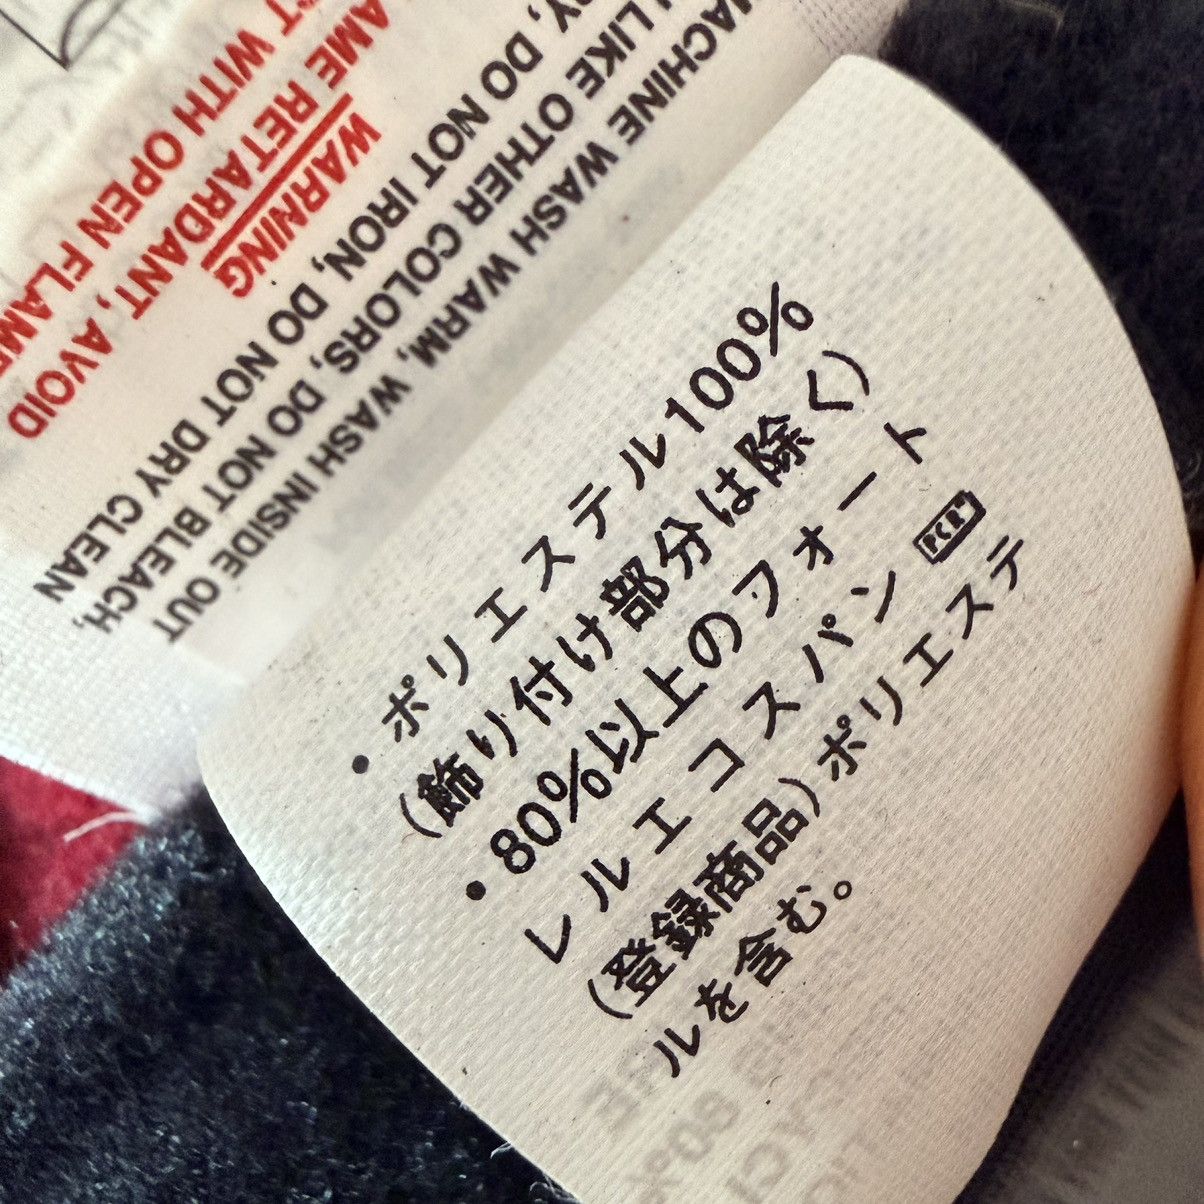 MACHINE WASH WARM, WASH INSIDE OUT
LIKE OTHER COLORS, DO NOT BLEACH,
DO NOT IRON, DO NOT DRY CLEAN
WARNING
RETARDANT, AVOID
WITH OPEN FLAME
・ポリエステル100%
(飾り付け部分は除く)
・80%以上のフォート
レルエコスパン PCR
(登録商品)ポリエステ
ルを含む。